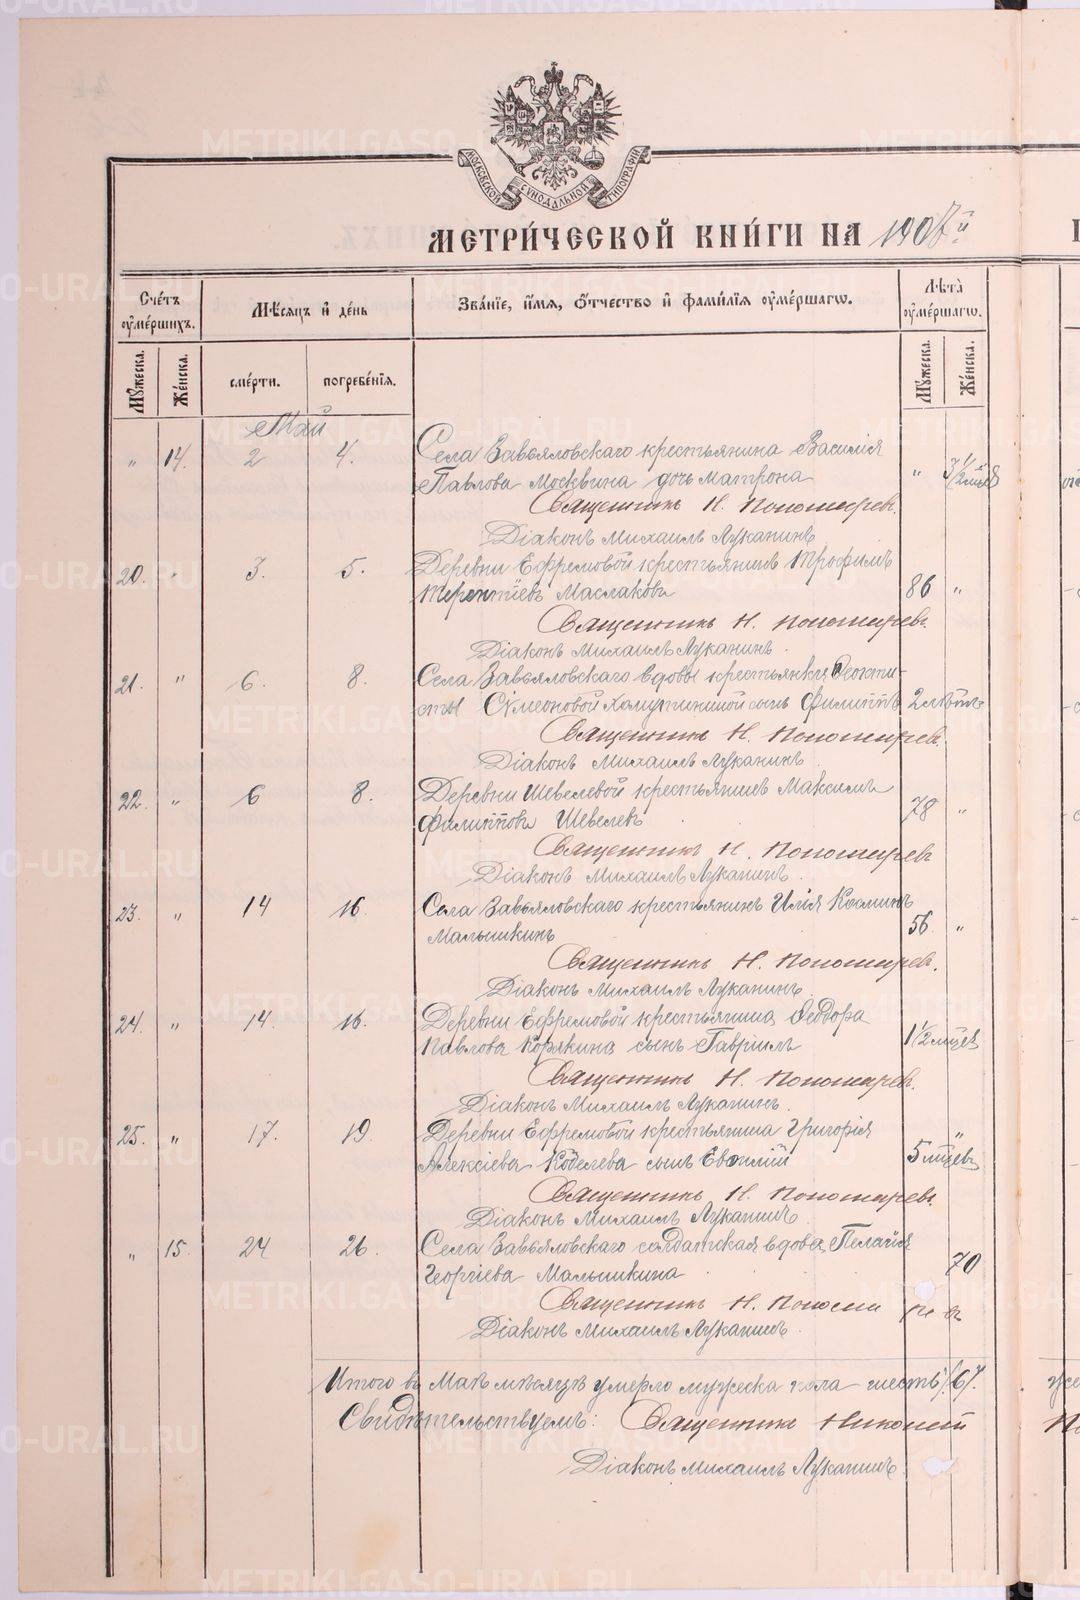 МОСКОВСКОЙ СѴНОДАЛЬНОЙ ТИПОГРАФІИ
МЕТРИ́ЧЕСКОЙ КНИ́ГИ НА 1907й
Сче́тъ ᲂу҆ме́ршихъ.
Мѣ́сяцъ и҆ де́нь
Зва́нїе, и҆́мя, ѻ҆́тчество и҆ фами́лїя ᲂу҆ме́ршагѡ.
Лѣта̀ ᲂу҆ме́ршагѡ.
Мꙋ́жеска.
Же́нска.
сме́рти.
погребе́нїя.
Мꙋ́жеска.
Же́нска.
Май
" 14. 2 4. Села Завьяловскаго крестьянина Василія
Павлова Москвина дочь Матрона "
Священникъ Н. Пономаревъ.
Діаконъ Михаилъ Луканинъ
20. " 3. 5. Деревни Ефремовой крестьянинъ Трофимъ
Терентіевъ Маслаковъ 86 "
Священникъ Н. Пономаревъ.
Діаконъ Михаилъ Луканинъ.
21. " 6. 8. Села Завьяловскаго вдовы крестьянки Ѳеокти-
сты Сѵмеоновой сынъ Филиппъ 2 лѣтъ
Священникъ Н. Пономаревъ.
Діаконъ Михаилъ Луканинъ
22. " 6 8. Деревни Шевелевой крестьянинъ Максимъ
Филипповъ Шевелевъ 78 "
Священникъ Н. Пономаревъ
Діаконъ Михаилъ Луканинъ.
23. " 14 16. Села Завьяловскаго крестьянинъ Илія Козминъ
Малышкинъ 56 "
Священникъ Н. Пономаревъ.
Діаконъ Михаилъ Луканинъ.
24. " 14. 16. Деревни Ефремовой крестьянина Ѳеодора
Павлова Корякина сынъ Гавріилъ 1 1/2 мѣс
Священникъ Н. Пономаревъ.
Діаконъ Михаилъ Луканинъ.
25. " 17. 19. Деревни Ефремовой крестьянина Григорія "
Алексіева Кобелева сынъ 5 мѣс
Священникъ Н. Пономаревъ.
Діаконъ Михаилъ Луканинъ.
" 15. 24 26. Села Завьяловскаго солдатская вдова Пелагія
Георгіева Малышкина 70
Священникъ Н. Пономаревъ
Діаконъ Михаилъ Луканинъ.
Итого въ Маѣ мѣсяцѣ умерло мужеска пола шесть /6/.
Свидѣтельствуемъ: Священникъ Николай
Діаконъ Михаилъ Луканинъ.
METRIKI.GASO-URAL.RU